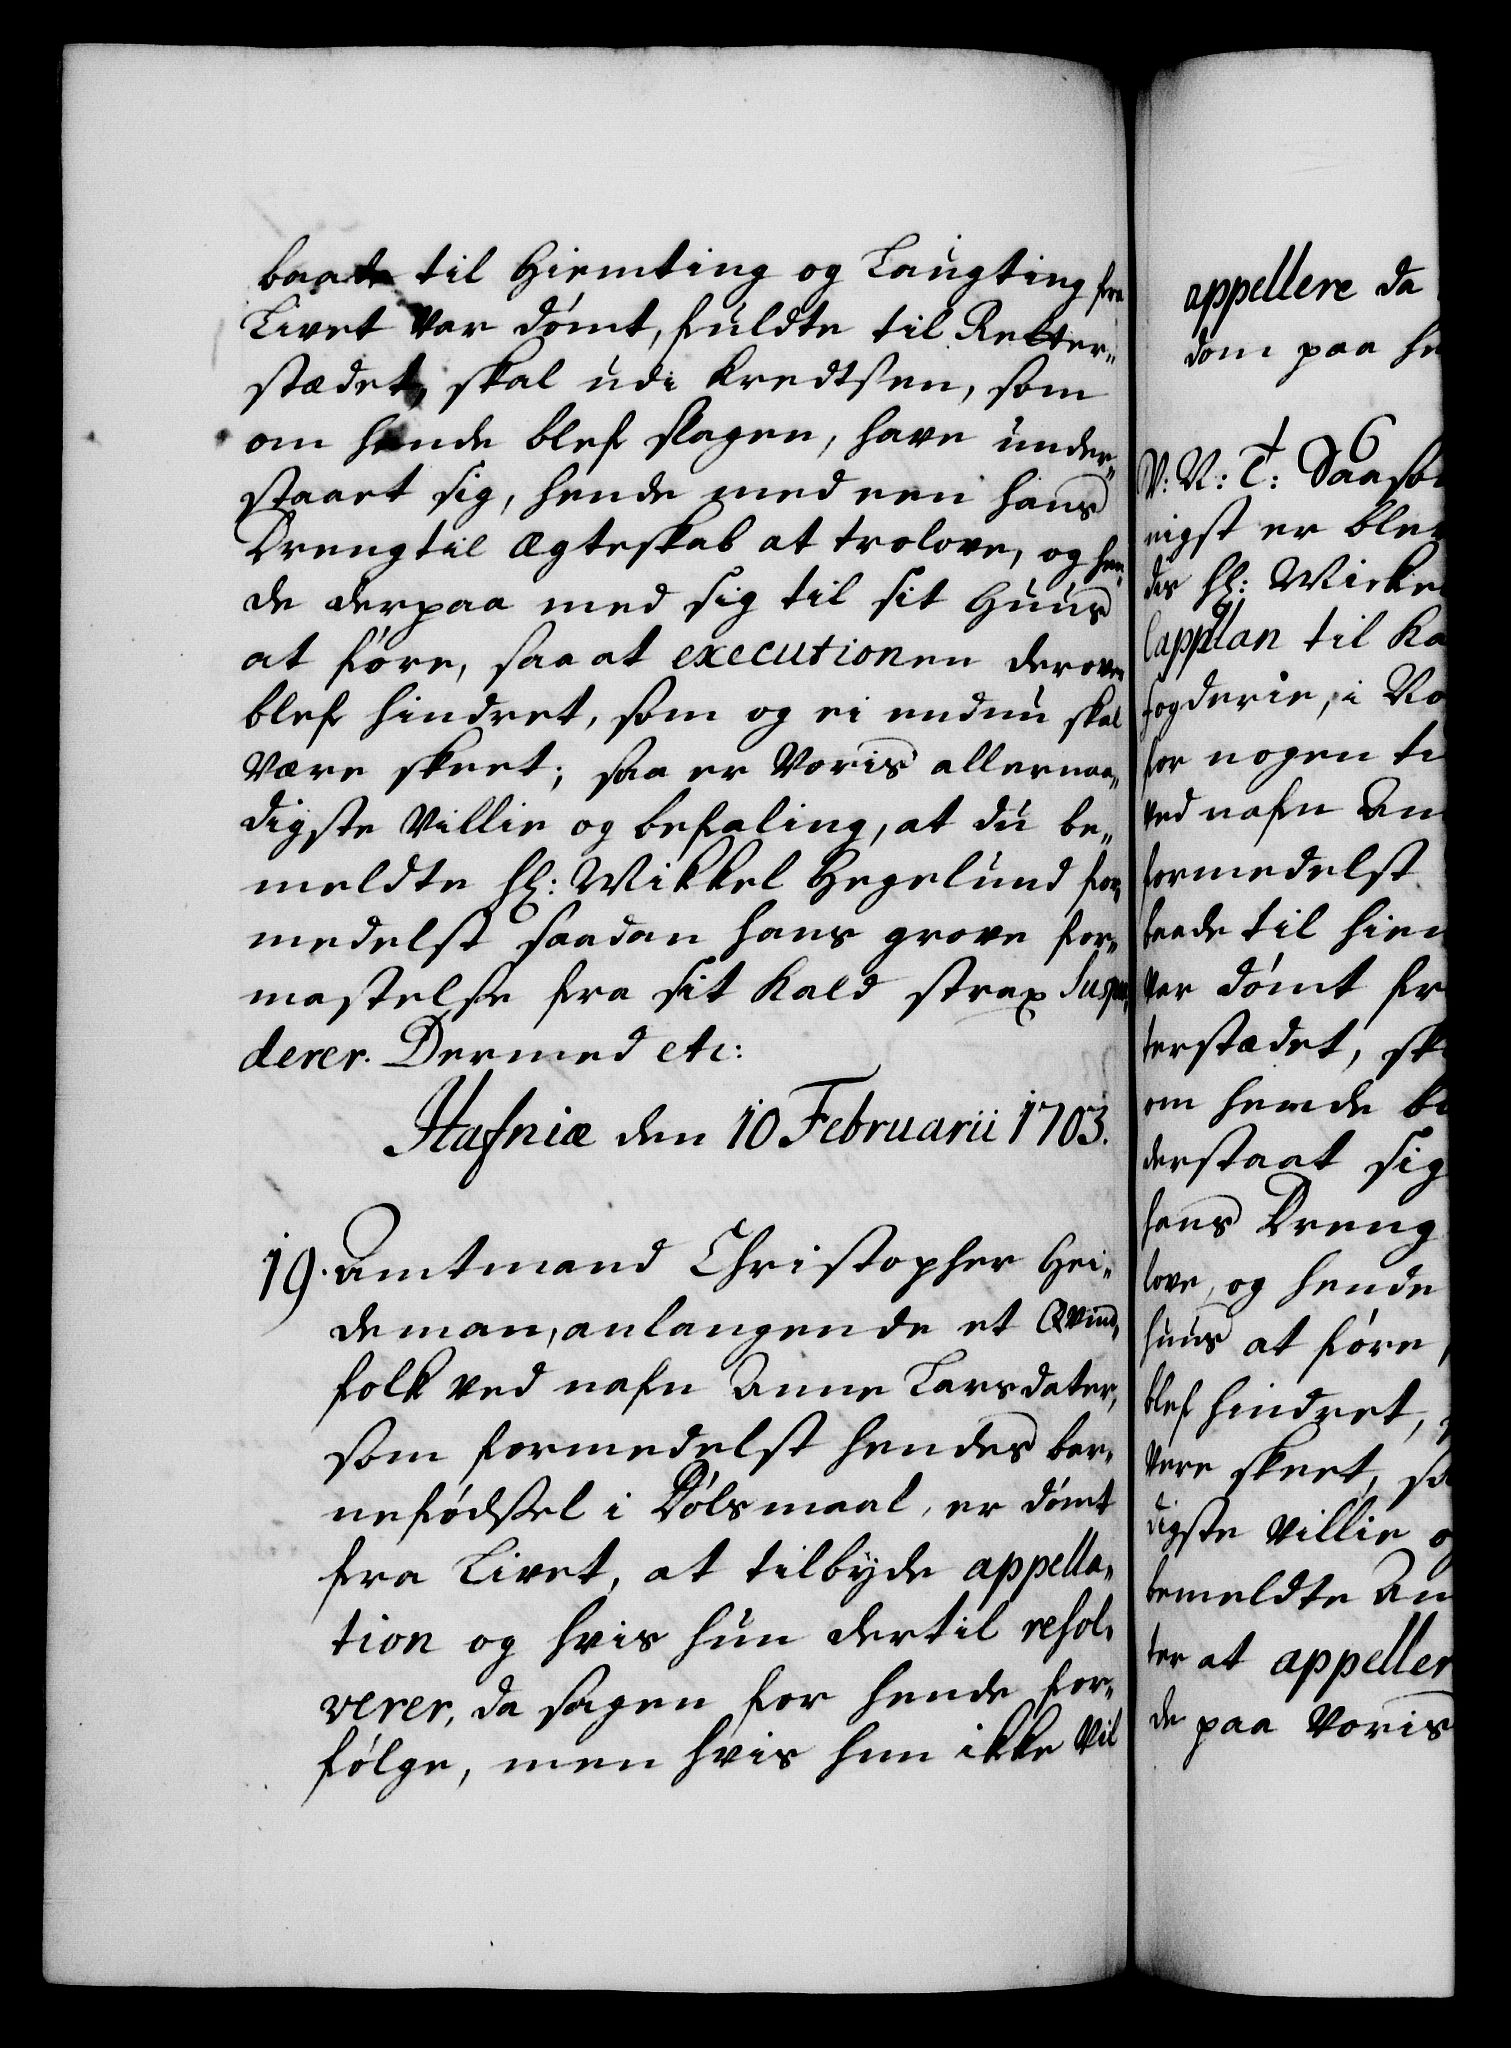 baade til Hiemting og Laugting fra
Livet var dømt, fuldte til Retter„
stædet, skal udi Kredtsen, som
om hende blef slagen, have under„
staaet sig, hende med een hans
Dreng til Ægteskab at trolove, og hen„
de derpaa med sig til sit Huus
at føre, saa at executionen derover
blef hindret, som og ei endnu skal
være skeet; saa er Voris allernaa„
digste Villie og befaling, at du be„
meldte Hr: Mikkel Hegelund for„
medelst saadan hans grove for„
mastelse fra sit Kald strax suspen„
derer. Dermed etc:
Hafniæ den 10 Februarii 1703.
19. Amtmand Christopher Hei„
deman, anlangende et Qvind„
folk ved nafn Anne Larsdater,
som formedelst hendes bar„
nefødsel i Dølsmaal, er dømt
fra Livet, at tilbyde appella„
tion og hvis hun dertil resol„
verer, da sagen for hende for„
følge, men hvis hun ikke vil
appellere da
dom paa he
6
V: N: T: Saasom
nigst er blev
des Hr: Mikke
Cappelan til Ka
fogderie, i No
for nogen ti
ved nafn An
formedelst
baade til Hiem
var dømt fr
terstædet, sk
om hende bl
derstaat sig
hans Dreng
love, og hende
huus at føre,
blef hindret,
være skeet, sa
digste villie o
bemeldte An
ter at appeller
de paa Voris